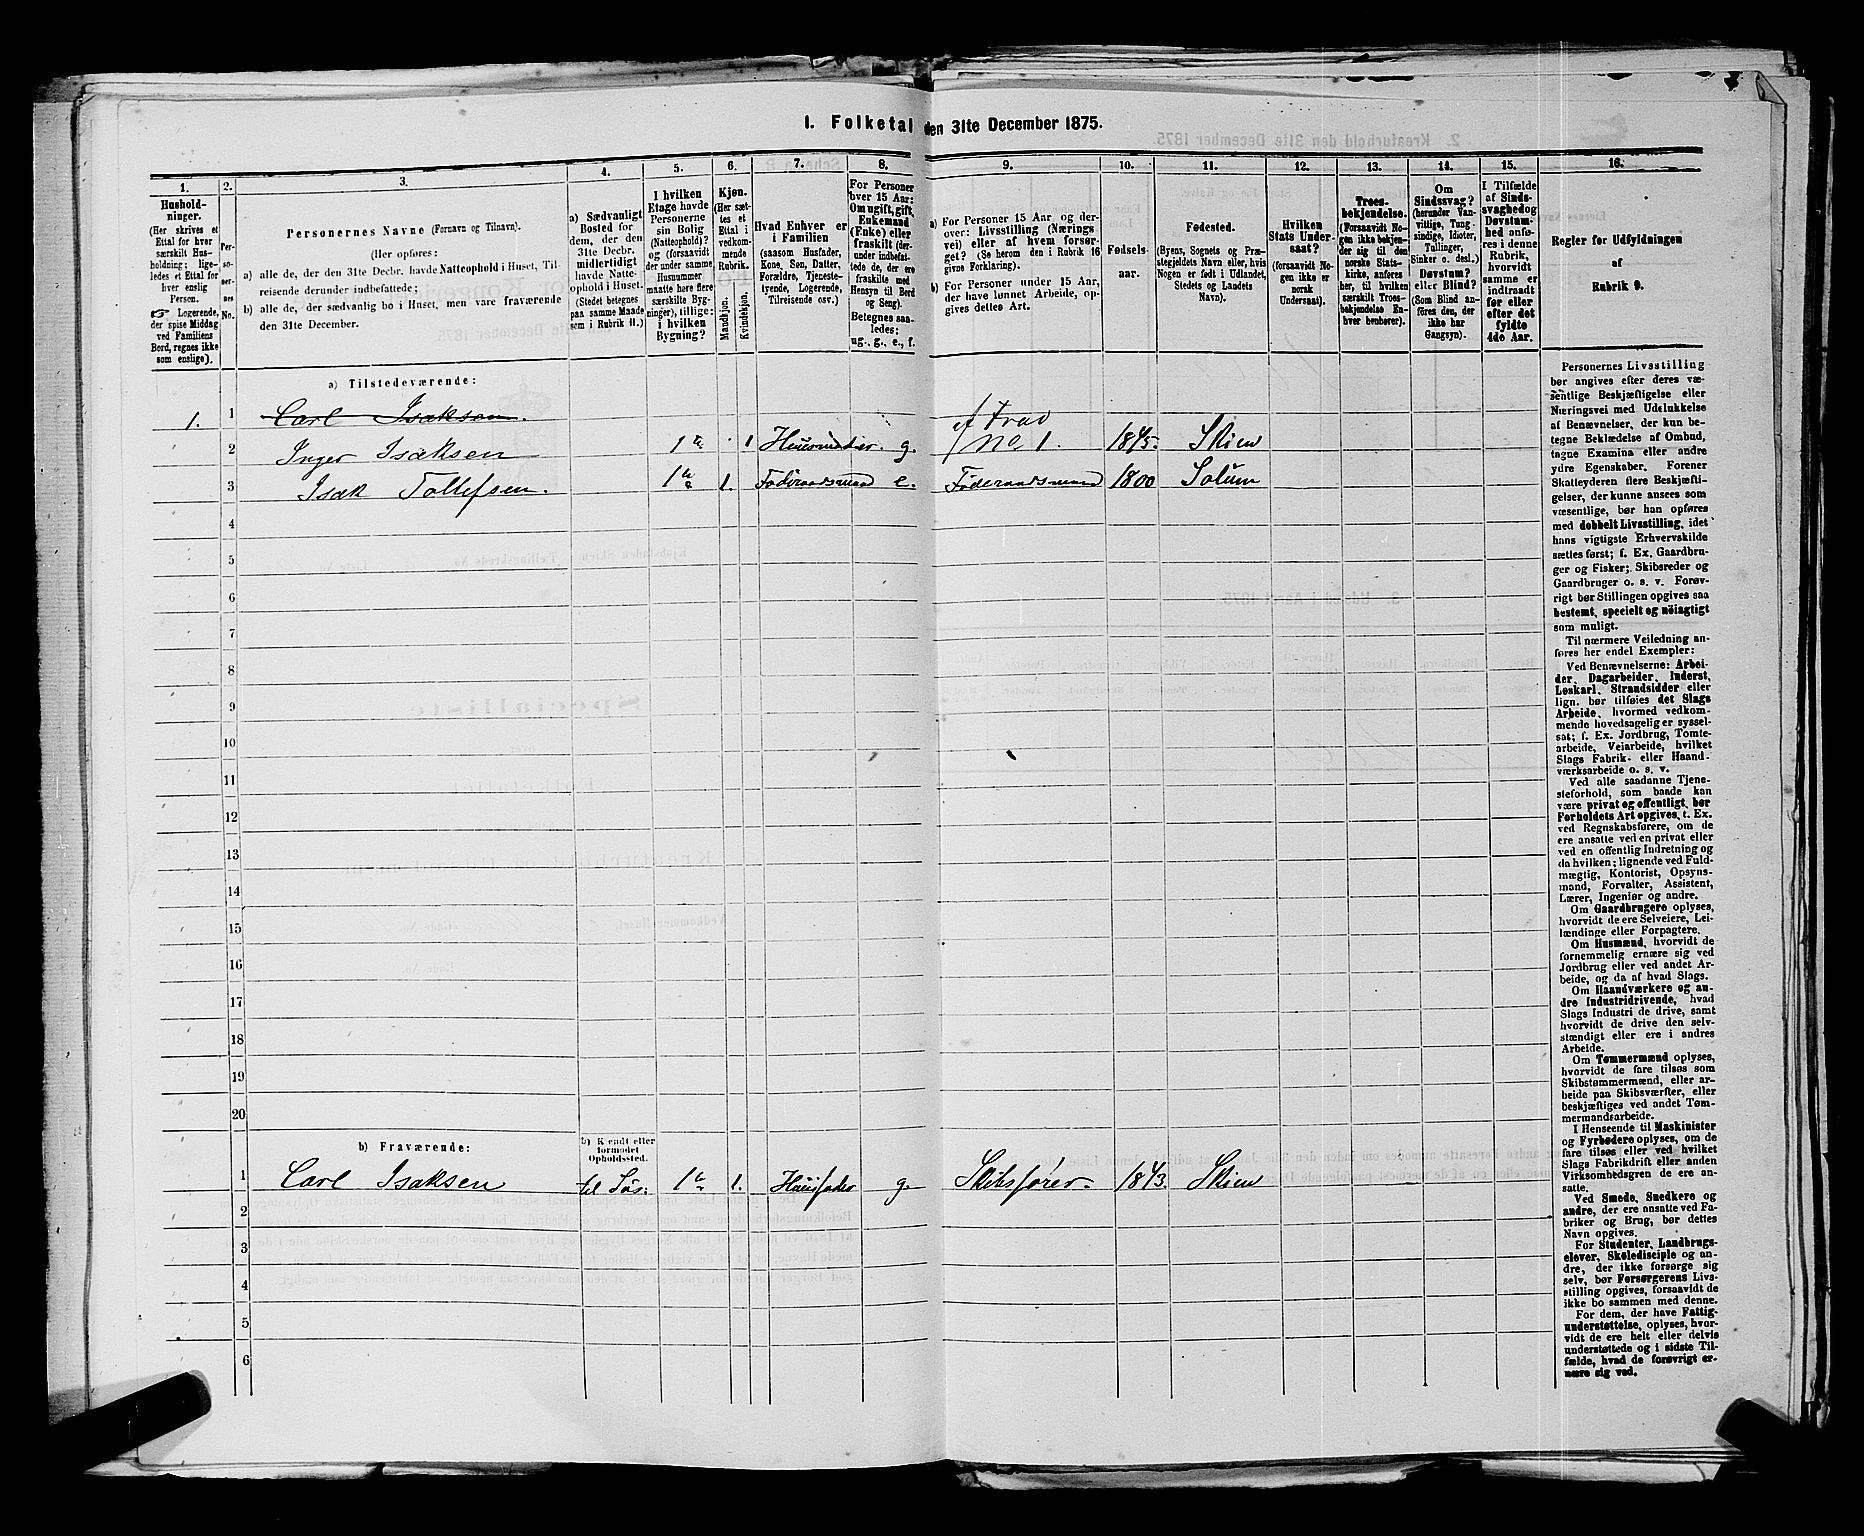 1. Folketal den 31te December 1875.
1.
Hushold-
ninger.
(Her skrives et
Ettal for hver
særskilt Hus-
holdning; lige-
ledes et Ettal for
hver enslig
Person.
Logerende,
der spise Middag
ved Familiens
Bord, regnes ikke
som enslige).
2.
Per-
so-
ner-
nes
No.
3.
Personernes Navne (Fornavn og Tilnavn).
(Her opføres:
a) alle de, der den 31te Decbr. havde Natteophold i Huset, Til-
reisende derunder indbefattede;
b) alle de, der sædvanlig bo i Huset, men vare fraværende
den 31te December.
4.
a) Sædvanligt
Bosted for
dem, der den
31te Decbr.
midlertidigt
havde Natte-
ophold i Huset.
(Stedet betegnes
paa samme Maade
som i Rubrik 11.)
5.
I hvilken
Etage havde
Personerne
sin Bolig
(Natteophold)?
og (forsaavidt
der under samme
Husnummer
maatte høre flere
særskilte Byg-
ninger), tillige:
i hvilken
Bygning?
6.
Kjøn.
(Her sæt-
tes et
Ettal i
vedkom-
mende
Rubrik.
Mandkjøn.
Kvindekjøn.
7.
Hvad Enhver er
i Familien
(saasom Husfader,
Kone, Søn, Datter,
Forældre, Tjeneste-
tyende, Logerende,
Tilreisende osv.)
8.
For Personer
over 15 Aar:
Om ugift, gift,
Enkemand
(Enke) eller
fraskilt (der-
under indbefat-
tede de, der ere
fraskilte med
Hensyn til Bord
og Seng).
Betegnes saa-
ledes:
ug., g., e., f.
9.
a) For Personer 15 Aar. og der-
over: Livsstilling (Nærings-
vei) eller af hvem forsør-
get? (Se herom den i Rubrik 16
givne Forklaring).
b) For Personer under 15 Aar,
der have lønnet Arbeide, op-
gives dettes Art.
10.
Fødsels-
aar.
11.
Fødested.
(Byens, Sognets og Præ-
stegjeldets Navn eller, hvis
Nogen er født i Udlandet,
Stedets og Landets
Navn).
12.
Hvilken
Stats Under-
saat?
(forsaavidt No-
gen ikke er
norsk
Undersaat).
13.
Troes-
bekjendelse.
(Forsaavidt No-
gen ikke bekjen-
der sig til den
norske Stats-
kirke, anføres
her, til hvilken
særskilt Troes-
bekjendelse En-
hver henhører).
14.
Om
Sindssvag?
(herunder Van-
vittige, Tung-
sindige, Idioter,
Tullinger,
Sinker o. desl.)
Døvstum?
eller Blind?
(Som Blind an-
føres den, der
ikke har
Gangsyn).
15.
I Tilfælde
af Sinds-
svaghed og
Døvstum-
hed anfø-
res i denne
Rubrik,
hvorvidt
samme er
indtraadt
før eller
efter det
fyldte
4de Aar.
16.
Regler for Udfyldningen
af
Rubrik 9.
a) Tilstedeværende:
1. 1 Carl Isaksen.
2 Inger Isaksen 1 1 Husmoder. g. No 1. 1845. Skien
3 Isak Tollefsen. 1 1. Føderaadsmand e. Føderaadsmand 1800 Solum
4
5
6
7
8
9
10
11
12
13
14
15
16
17
18
19
20
b) Fraværende:
b) Kjendt eller
formodet
Opholdssted.
1 Carl Isaksen til Søs. 1 1. Husfader g. Skibsfører. 1843. Skien
2
3
4
5
6
Personernes Livsstilling
bør angives efter deres væ-
sentlige Beskjæftigelse eller
Næringsvei med Udelukkelse
af Benævnelser, der kun be-
tegne Beklædelse af Ombud,
tagne Examina eller andre
ydre Egenskaber. Forener
Skatteyderen flere Beskjæfti-
gelser, der kunne ansees som
væsentlige, bør han opføres
med dobbelt Livsstilling, idet
hans vigtigste Erhvervskilde
sættes først; f. Ex. Gaardbru-
ger og Fisker; Skibsreder og
Gaardbruger o. s. v. Forøv-
rigt bør Stillingen opgives saa
bestemt, specielt og nøiagtigt
som muligt.
Til nærmere Veiledning an-
føres her endel Exempler:
Ved Benævnelserne: Arbei-
der, Dagarbeider, Inderst,
Løskarl, Strandsidder eller
lign. bør tilføies det Slags
Arbeide, hvormed vedkom-
mende hovedsagelig er syssel-
sat; f. Ex. Jordbrug, Tomte-
arbeide, Veiarbeide, hvilket
Slags Fabrik- eller Haand-
værksarbeide o. s. v.
Ved alle saadanne Tjene-
steforhold, som baade kan
være privat og offentligt, bør
Forholdets Art opgives, t. Ex.
ved Regnskabsførere, om de
ere ansatte ved en privat eller
ved en offentlig Indretning og
da hvilken; lignende ved Fuld-
mægtig, Kontorist, Opsyns-
mand, Forvalter, Assistent,
Lærer, Ingeniør og andre.
Om Gaardbrugere oplyses,
hvorvidt de ere Selveiere, Lei-
lændinge eller Forpagtere.
Om Husmænd, hvorvidt de
fornemmelig ernære sig ved
Jordbrug eller ved andet Ar-
beide, og da af hvad Slags.
Om Haandværkere og an-
dre Industridrivende, hvad
Slags Industri de drive, samt
hvorvidt de drive den selv-
stændigt eller ere i andres
Arbeide.
Om Tømmermænd oplyses,
hvorvidt de fare tilsøs som
Skibstømmermænd, eller ar-
beide paa Skibsværfter, eller
beskjæftiges ved andet Tøm-
mermandsarbeide.
I Henseende til Maskinister
og Fyrbødere oplyses, om de
fare tilsøs eller ved hvilket
Slags Fabrikdrift eller anden
Virksomhedsgren de ere an-
satte.
Ved Smede, Snedkere og
andre, der ere ansatte ved Fa-
briker og Brug, bør dettes
Navn opgives.
For Studenter, Landbrugs-
elever, Skoledisciple og an-
dre, der ikke forsørge sig
selv, bør Forsørgerens Livs-
stilling opgives, forsaavidt de
ikke bo sammen med denne.
For dem, der have Fattig-
understøttelse, oplyses, hvor-
vidt de ere helt eller delvis
understøttede og i sidste Til-
fælde, hvad de forøvrigt er-
nære sig ved.